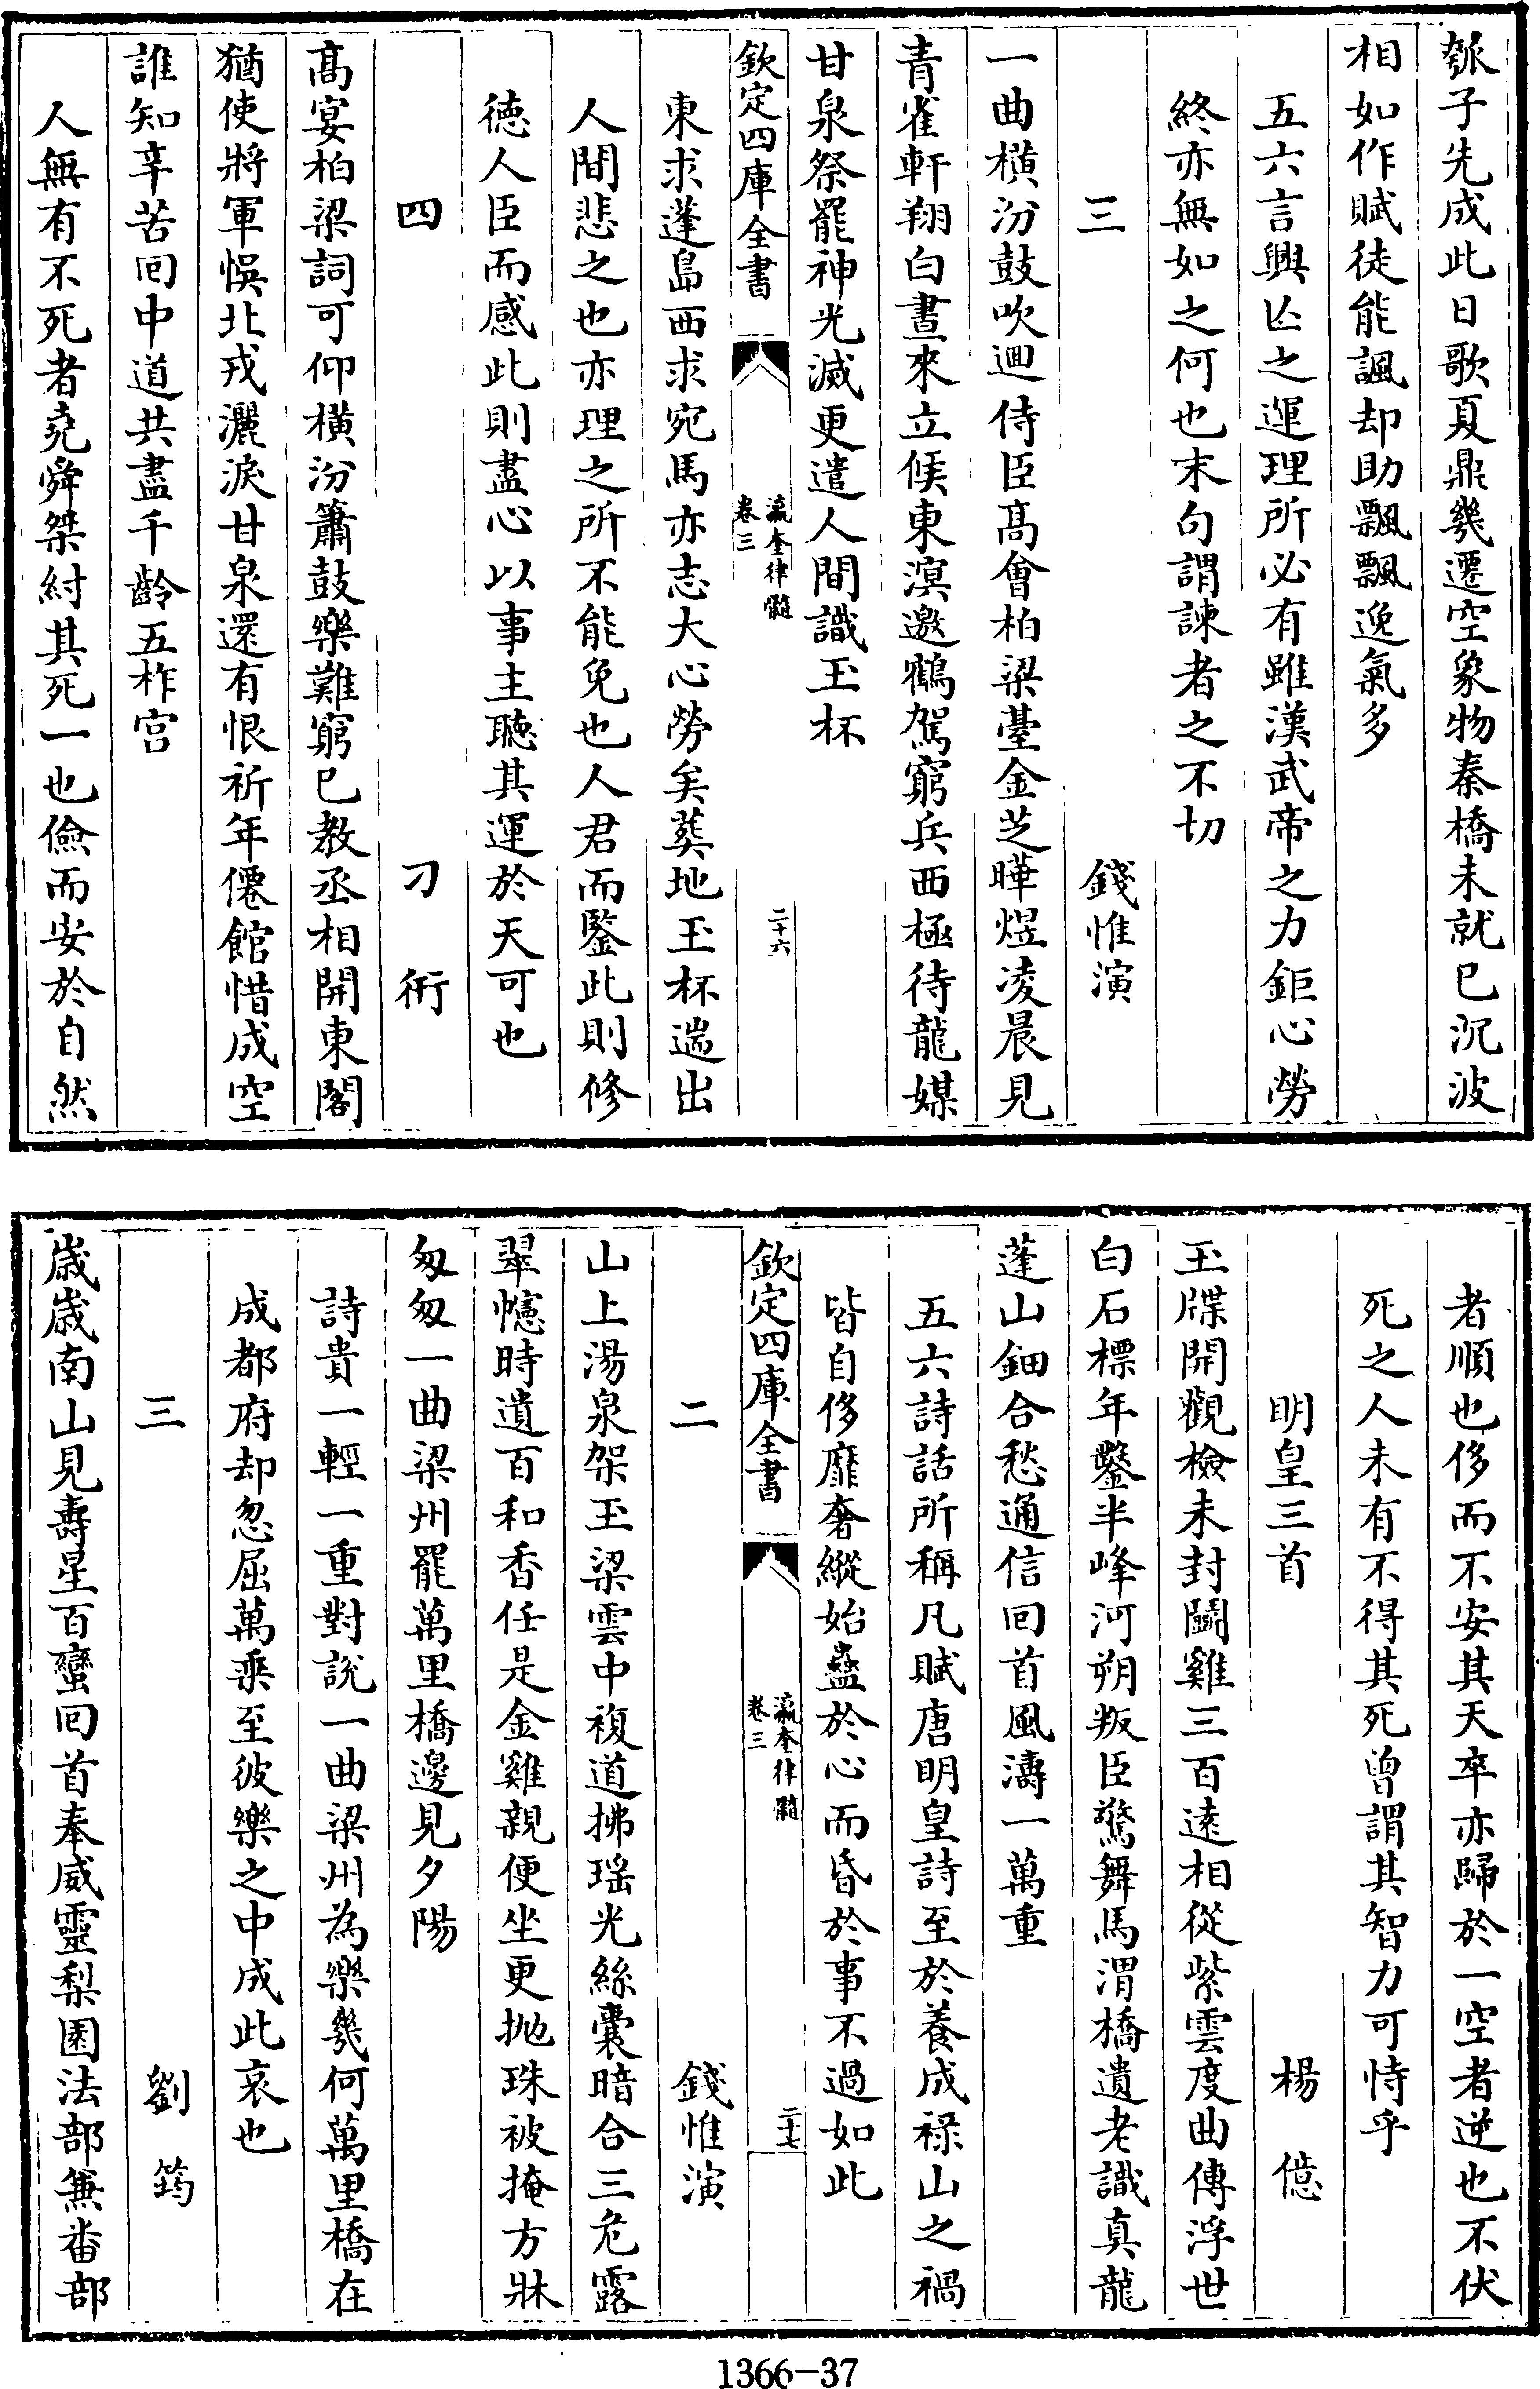 瓠子先成此日歌夏鼎幾遷空象物秦橋未就已沉波
相如作賦徒能諷却助飄飄逸氣多
五六言興亾之運理所必有雖漢武帝之力鉅心勞
終亦無如之何也末句謂諫者之不切
三 錢惟演
一曲橫汾鼓吹迴侍臣髙㑹柏梁臺金芝曄煜凌晨見
青雀軒翔白晝來立候東溟邀鶴駕窮兵西極待龍媒
甘泉祭罷神光滅更遣人間識玉杯
欽定四庫全書
瀛奎律髓
卷三
二十六
東求蓬島西求宛馬亦志大心勞矣葬地玉杯遄出
人間悲之也亦理之所不能免也人君而鑒此則修
徳人臣而感此則盡心以事主聽其運於天可也
四 刁衎
髙宴柏梁詞可仰橫汾簫鼓樂難窮已教丞相開東閣
猶使將軍悞北戎灑淚甘泉還有恨祈年僊館惜成空
誰知辛苦回中道共盡千齡五柞宫
人無有不死者堯舜桀紂其死一也儉而安於自然
者順也侈而不安其天卒亦歸於一空者逆也不伏
死之人未有不得其死曾謂其智力可恃乎
明皇三首 楊億
玉牒開觀檢未封鬭雞三百逺相從紫雲度曲傳浮世
白石標年鑿半峰河朔叛臣驚舞馬渭橋遺老識真龍
蓬山鈿合愁通信回首風濤一萬重
五六詩話所稱凡賦唐明皇詩至於養成禄山之禍
皆自侈靡奢縱始蠱於心而昏於事不過如此
欽定四庫全書
瀛奎律髓
卷三
二十七
二 錢惟演
山上湯泉架玉梁雲中複道拂瑶光絲囊暗合三危露
翠幰時遺百和香任是金雞親便坐更抛珠被掩方牀
匆匆一曲梁州罷萬里橋邊見夕陽
詩貴一輕一重對說一曲梁州為樂幾何萬里橋在
成都府却忽屈萬乘至彼樂之中成此哀也
三 劉筠
嵗嵗南山見壽星百蠻回首奉威靈梨園法部兼畨部
1366-37